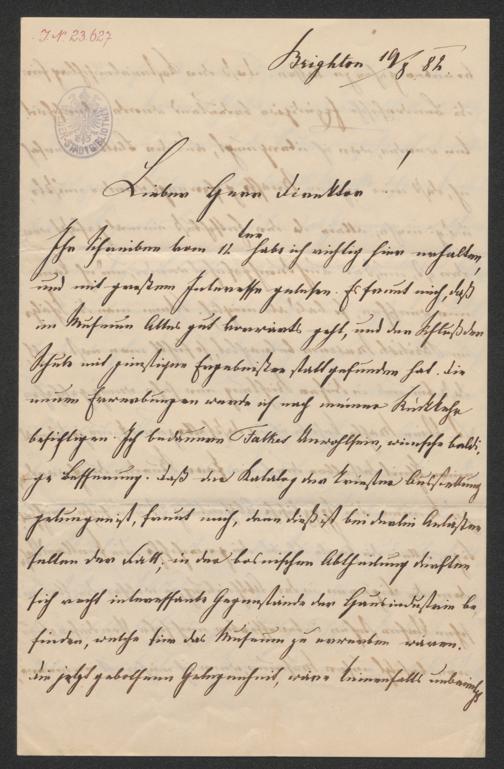 J.N. 23.627
Brighton 19/8 82
Lieber Herr Direktor!
Ihr Schreiben vom 12ten habe ich richtig hier erhalten,
und mit großem Interesse gelesen. Es freut mich, daß
im Museum Alles gut vorwärts geht, und der Schluß der
Schule mit günstigen Ergebnißen stattgefunden hat. Die
neuen Erwerbungen werde ich nach meiner Rückkehr
besichtigen. Ich bedauere Falkes Unwohlsein, wünsche baldi-
ge Besserung. Daß der Katalog der Triester Ausstellung
gelungen ist, freut mich, denn dieß ist bei derlei Anläßen
selten der Fall; in der bosnischen Abtheilung dürften
sich recht interessante Gegenstände der Hausindustrie be-
finden, welche für das Museum zu erwerben wären.
Die jetzt gebothene Gelegenheit, wäre keinenfalls unbenützt